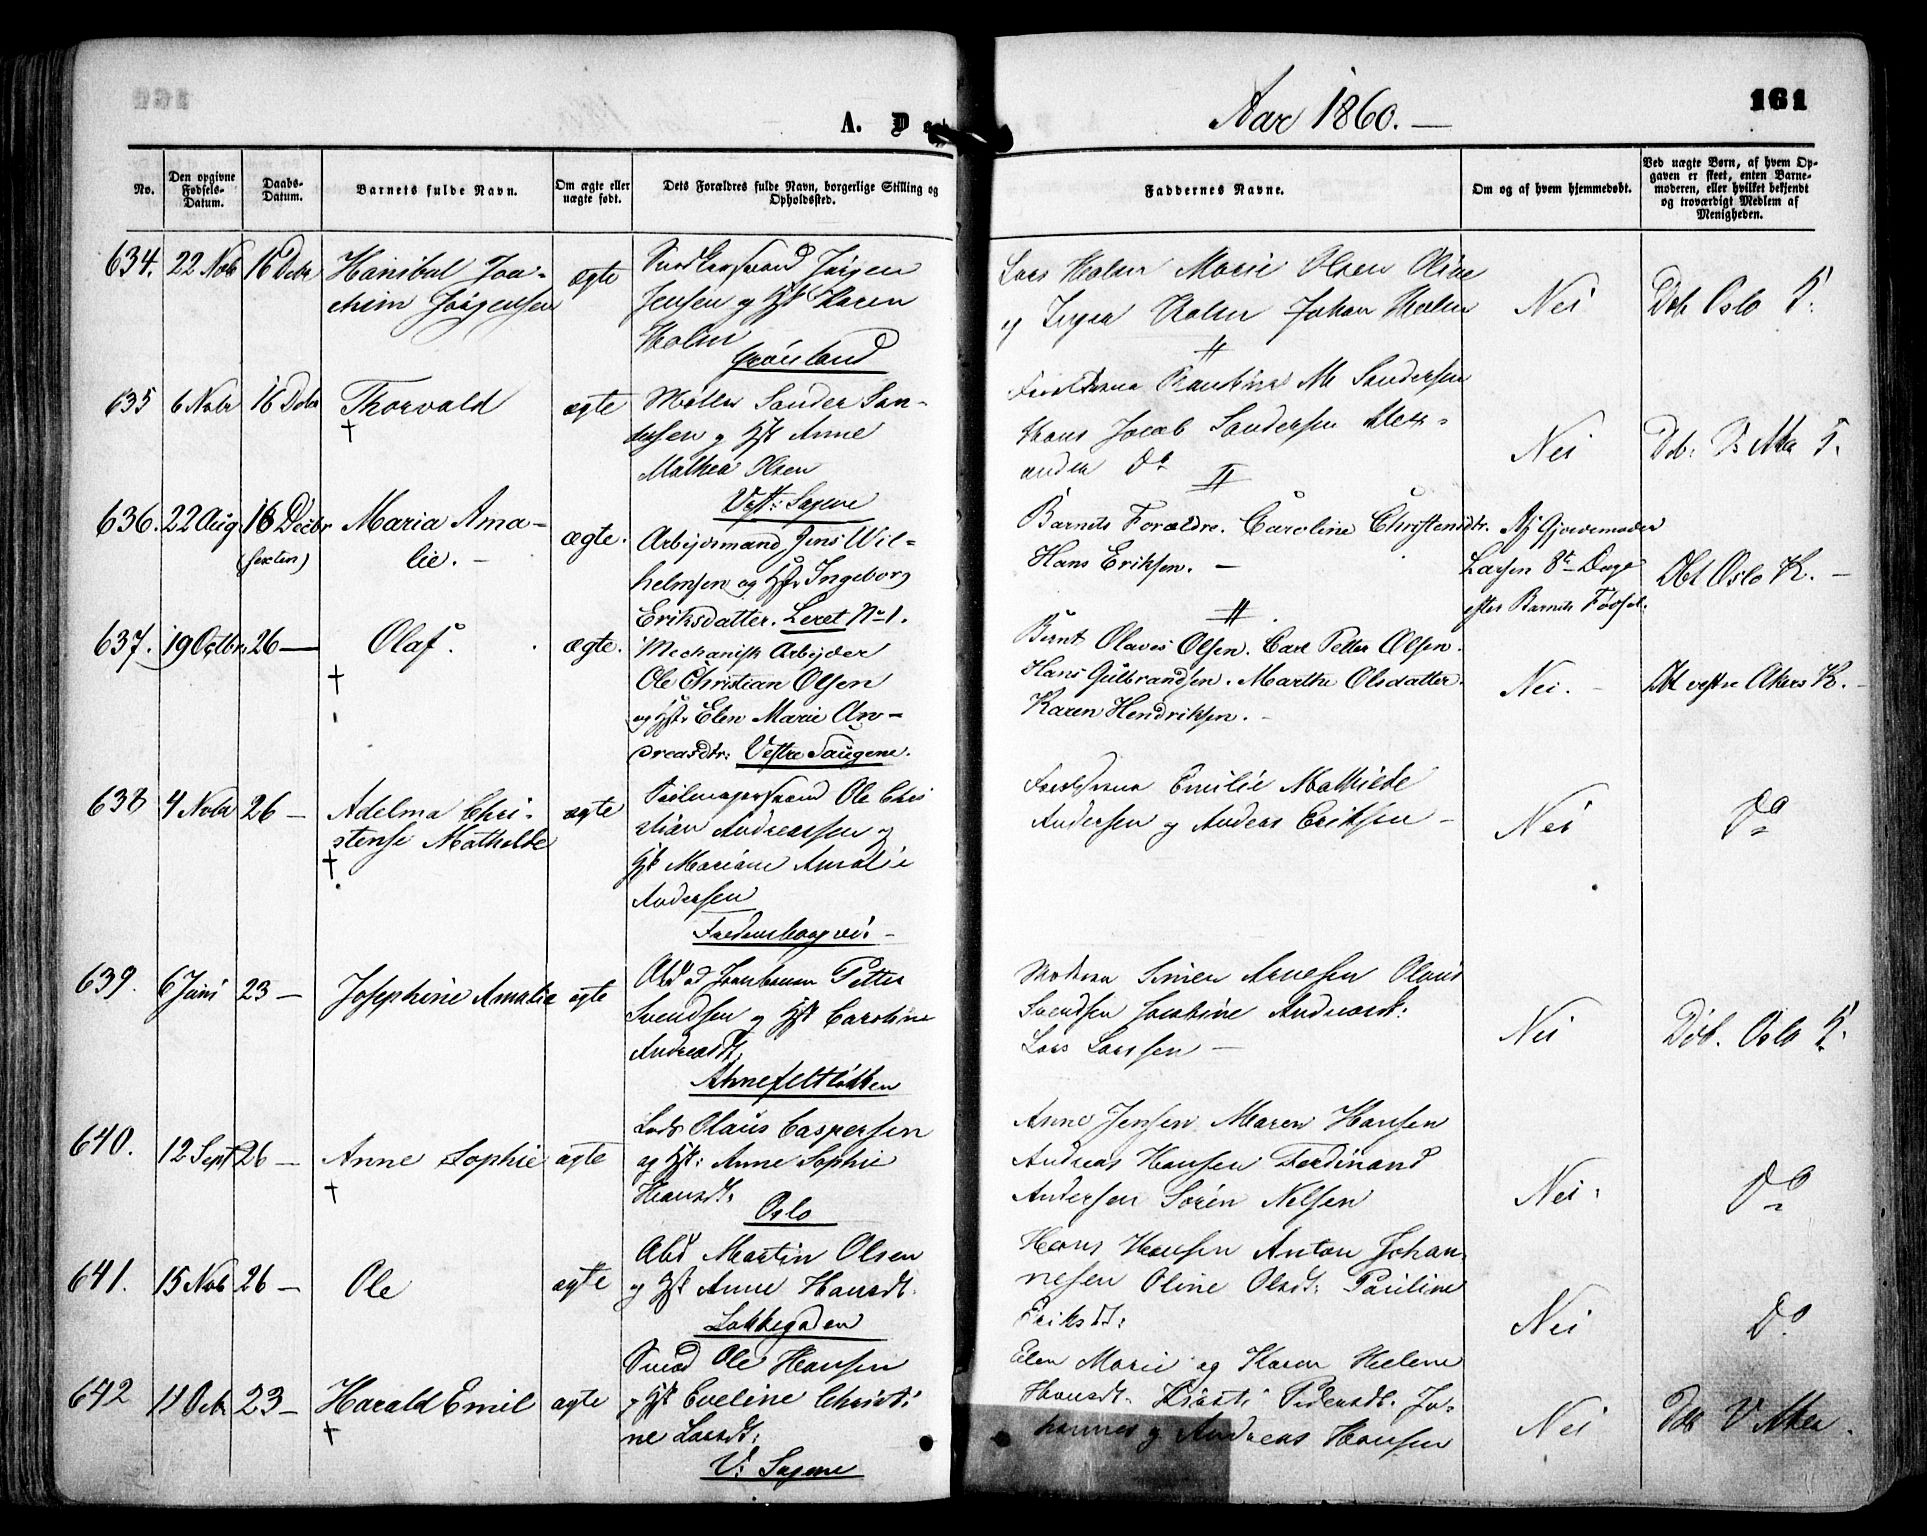 A. D
Aar 1860. —
161
No.
Den opgivne Fødsels-Datum.
Daabs-Datum.
Barnets fulde Navn.
Om ægte eller uægte født.
Dets Forældres fulde Navn, borgerlige Stilling og Opholdssted.
Faddernes Navne.
Om og af hvem hjemmedøbt.
Ved uægte Børn, af hvem Opgaven er skeet, enten Barnemoderen, eller hvilket bekjendt og troværdigt Medlem af Menigheden.
634. 22 Nob 16 Debr Hanibal Joa-
chim Jörgensen
ægte
Snedkersvend Jörgen
Jensen og Hst Karen
Holm
Grönland
Lars Holm Marie Olsen Oline
og Holm Johan Holm
Nei
Döb Oslo K.
635 6 Nobr 16 Debr Thorvald
†
ægte
Möller Sander San-
dersen og Hst Anne
Mathea Olsen
Vest: Sagene
M Sandersen
Hans Jacob Sandersen Alex-
andra Do
Nei
Döb. V Aker K.
636. 22 Aug. 16 Decbr
(sexten)
Maria Ama-
lie. -
ægte.
Arbejdsmand Jens Wil-
helmsen og Hstr Ingeborg
Eriksdatter. Leret No 1.
Barnets Forældre. Caroline Christensdtr.
Hans Eriksen. —
Af Gjordemoder
Larsen 8te Dage
efter Barnets Fødsel.
Dbt Oslo K. —
637. 19 Octbr. 26 — Olaf.
†
ægte.
Mechanisk Arbejder
Ole Christian Olsen
og Hstr Elen Marie An-
dreasdtr: Vestre Saugene.
Bernt Olaves Olsen. Carl Petter Olsen.
Hans Gulbrandsen. Marthe Olsdatter.
Karen Hendriksen. -
Nei. -
Dbt vestre Akers K. -
638 4 Nobr 26 — Adelma Chri-
stense Mathilde
†
ægte
Seilmagersvend Ole Chri
stian Andreassen og
Hst Mariane Amalie
Andersen
Fredensborgvei -
Emilie Mathilde
Andersen og Anders Eriksen -
Nei
Do
639. 6 Juni 23 — Josephine Amalie
ægte
Abd ad Jernbanen Petter
Svendsen og Hst Caroline
Andreasdt.
Ahnefeltlökken
Moderen Arnesen Olaus
Svendsen Jacobine Andreasdt:
Lars Larssen —
Nei
Döb. Oslo K.
640. 12 Sept 26 — Anne Sophie
†
ægte
Lods Olaus Caspersen
og Hst: Anne Sophie
Hansdt:
Oslo
Anne Jensen Maren Hansen
Andreas Hansen Ferdinand
Andersen Sören Nelsen
Nei.
Do
641. 15 Nob 26 — Ole
ægte
Abd Martin Olsen
og Hst Anne Hansdt.
Lakkegaden
Hans Hansen Anton Johan-
nesen Oline Olsdt: Pauline
Eriksdt:
Nei
Do
642 11 Oct. 23 — Harald Emil
†
ægte
Smed Ole Hansen
og Hst Eveline Christi
ne Larsdt:
V: Sagene
Elen Marie og Karen Helene
Hansdt. Kirsti Pedersdt. Jo-
hannes og Andreas Hansen
Nei
Döb V Aker.